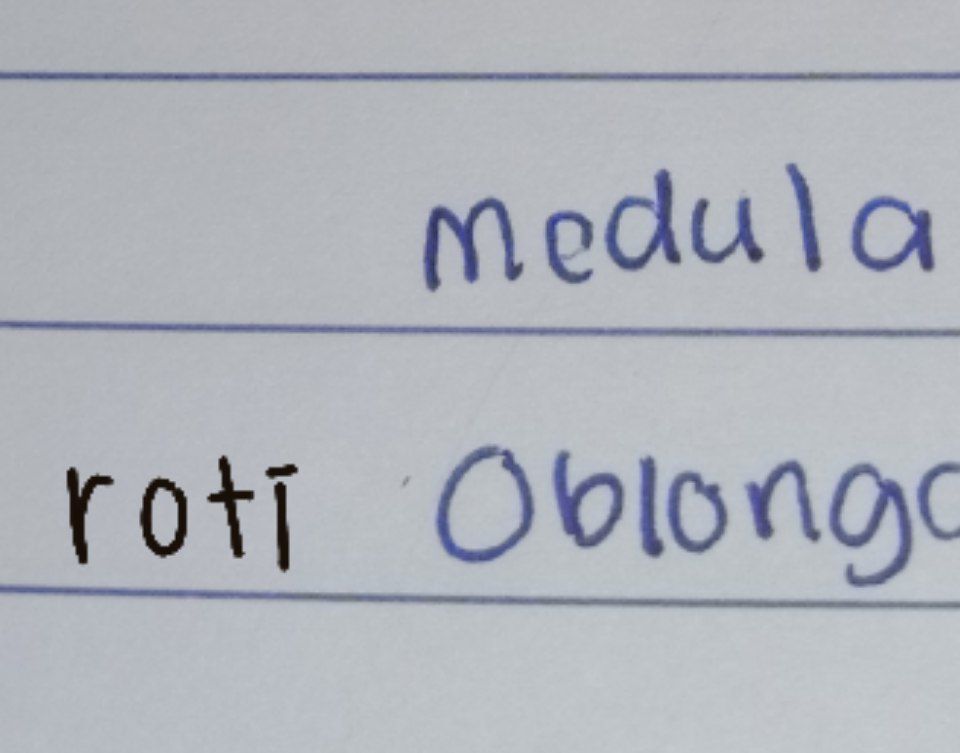 medula
roti Oblonga